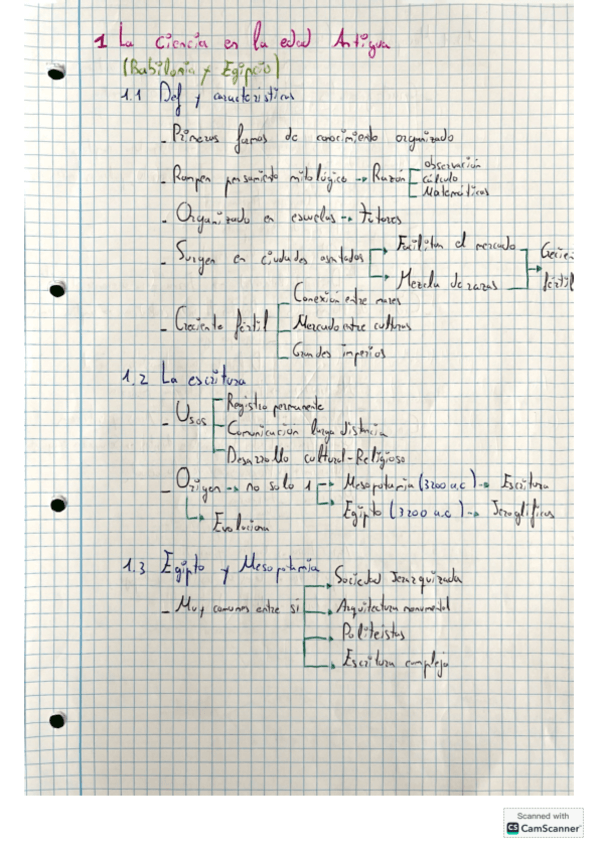 1 La Ciencia en la edad Antigua
(Babilonia y Egipcio)
1.1 Def y características
- Primeras formas de conocimiento organizado
- Rompen pensamiento mitológico → Razón
observación
cálculo
Matemáticas
- Organizado en escuelas →
- Surgen en ciudades asentadas
Facilitan el mercado
Mezcla de razas
Crecien
fértil
- Creciente fértil
Conexión entre mares
Mercado entre culturas
Grandes imperios
1.2 La escritura
- Usos
Registro permanente
Comunicación larga distancia
Desarrollo cultural-Religioso
- Origen → no solo 1
Mesopotamia (3200 a.c) → Escritura
Egipto (3200 a.c) → Jeroglíficos
Evoluciona
1.3 Egipto y Mesopotamia
- Muy comunes entre si
Sociedad Jerarquizada
Arquitectura monumental
Politeistas
Escritura compleja
Scanned with
CS CamScanner